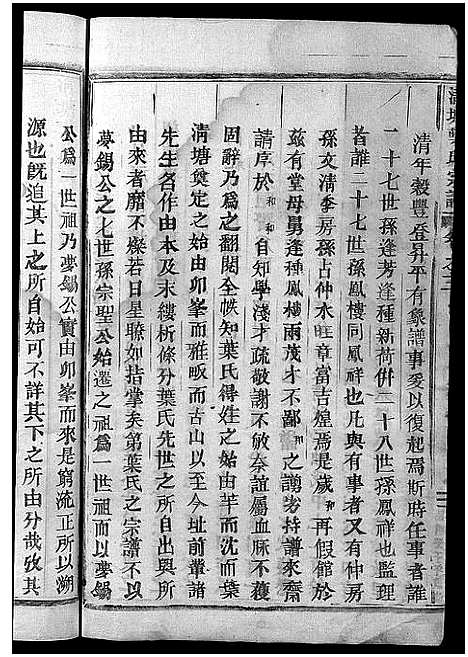 清年穀豐登昇平有象譜事爰以復起焉斯時任事者誰
二十七世孫逢芳逢種新荷併二十八世孫鳳祥也監理
者誰二十七世孫逢種鳳樓同鳳祥也凡與有事者又有仲房
孫文清季房孫古仲水旺章富吉煌焉是歲和再假館於
茲有堂母舅逢種鳳樓兩茂才不鄙和之譾劣持譜來齋
請序於和和自知學淺才疏敬謝不敏奈誼屬血脉不獲
固辭乃爲之翻閱全帙知葉氏得姓之始由芊而沈而葉
清塘奠定之始由卯峯而雅畈而古山以至今址前輩諸
先生名作由本及末縷析條分葉氏先世之所自出與所
由來者靡不燦若日星瞭如指掌矣第葉氏之宗譜不以
夢錫公之七世孫宗聖公始遷之祖爲一世祖而以夢錫
公爲一世祖乃夢錫公實由卯峯而來是窮流正所以溯
源也旣追其上之所自始可不詳其下之所由分哉攷其